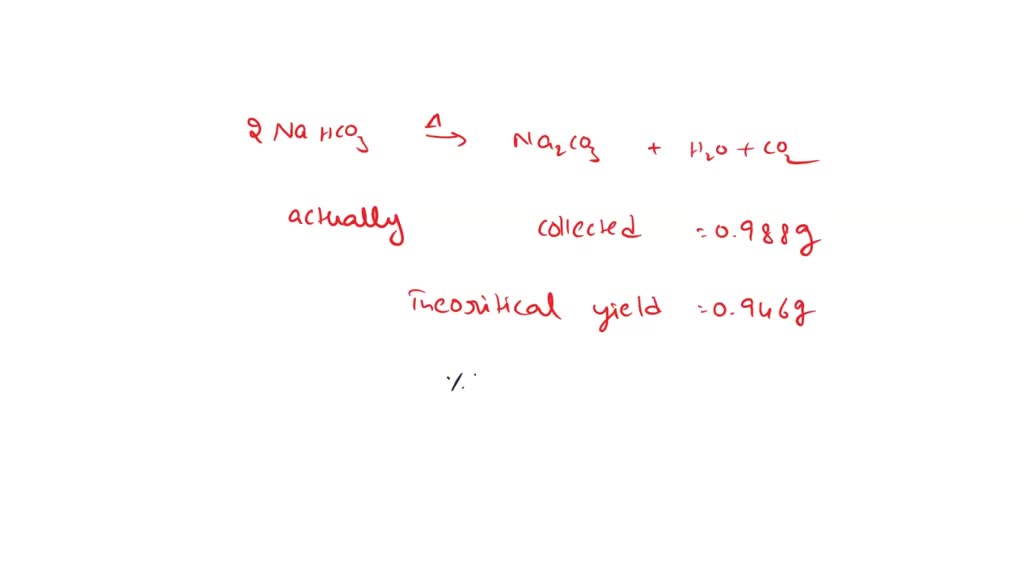 2 NaHCO3 Δ→ Na2CO3 + H2O + CO2
actually collected = 0.988g
Theoritical yield = 0.946g
%